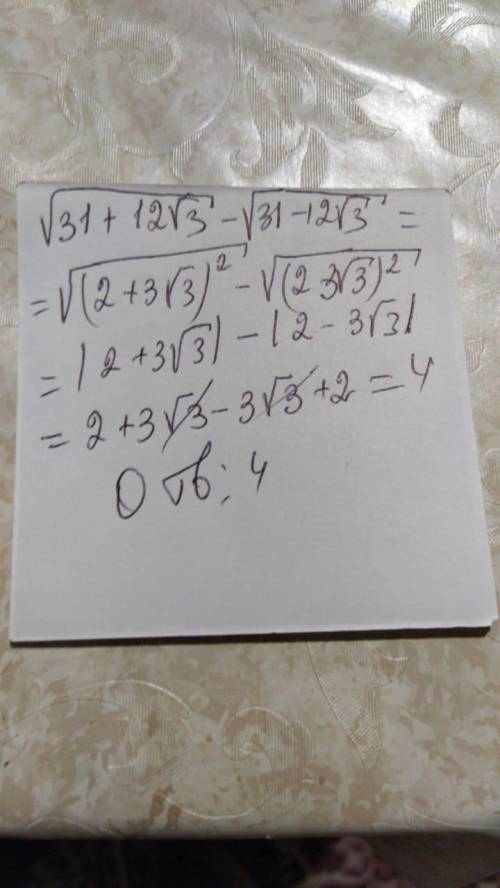 √31 + 12√3 - √31 - 12√3 =
= √(2 + 3√3)² - √(2 3√3)²
= |2 + 3√3| - |2 - 3√3|
= 2 + 3√3 - 3√3 + 2 = 4
Отв: 4